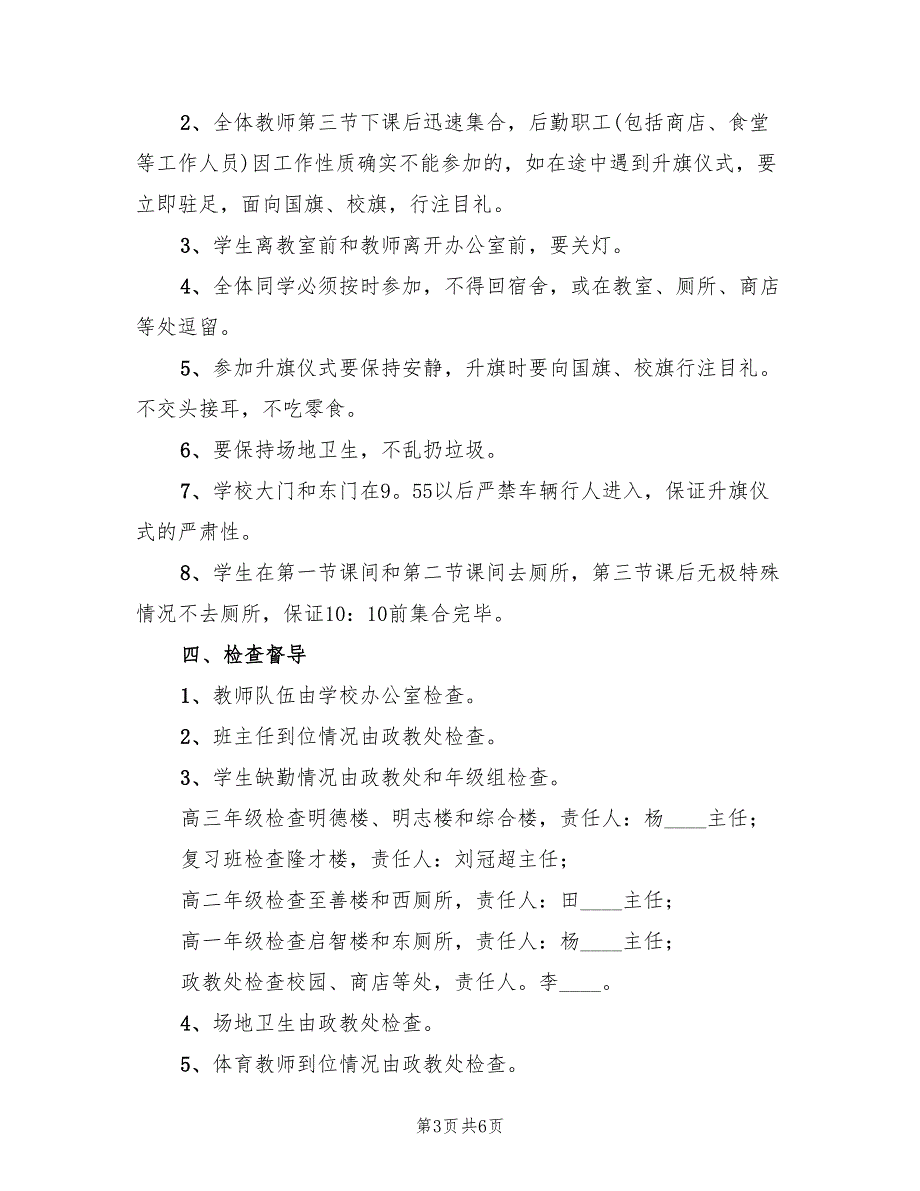 2、全体教师第三节下课后迅速集合，后勤职工(包括商店、食堂
等工作人员)因工作性质确实不能参加的，如在途中遇到升旗仪式，要
立即驻足，面向国旗、校旗，行注目礼。
3、学生离教室前和教师离开办公室前，要关灯。
4、全体同学必须按时参加，不得回宿舍，或在教室、厕所、商店
等处逗留。
5、参加升旗仪式要保持安静，升旗时要向国旗、校旗行注目礼。
不交头接耳，不吃零食。
6、要保持场地卫生，不乱扔垃圾。
7、学校大门和东门在9。55以后严禁车辆行人进入，保证升旗仪
式的严肃性。
8、学生在第一节课间和第二节课间去厕所，第三节课后无极特殊
情况不去厕所，保证10：10前集合完毕。
四、检查督导
1、教师队伍由学校办公室检查。
2、班主任到位情况由政教处检查。
3、学生缺勤情况由政教处和年级组检查。
高三年级检查明德楼、明志楼和综合楼，责任人：杨____主任；
复习班检查隆才楼，责任人：刘冠超主任；
高二年级检查至善楼和西厕所，责任人：田____主任；
高一年级检查启智楼和东厕所，责任人：杨____主任；
政教处检查校园、商店等处，责任人。李____。
4、场地卫生由政教处检查。
5、体育教师到位情况由政教处检查。
第3页共6页